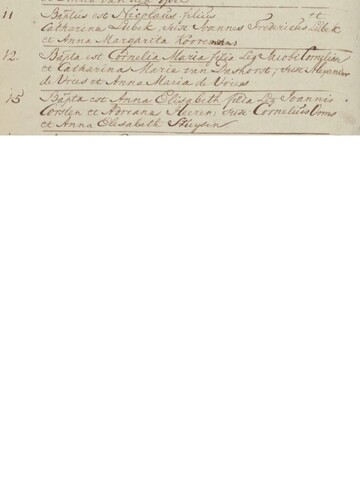 11 Bãptus est Nicolaus filius et
Catharina Lübek, susc Joannes Fredericus Lübek
et Anna Margarita
12. Bãpta est Cornelia Maria filia Leg Jacobi Cornelier
et Catharina Maria van Dashorst; susc Alexander
de Vries et Anna Maria de Vries
15 Bãpta est Anna Elisabeth filia Leg Joannis
Corsten et Adriana Heeren; susc Cornelius Oms
et Anna Elisabeth Thuysen